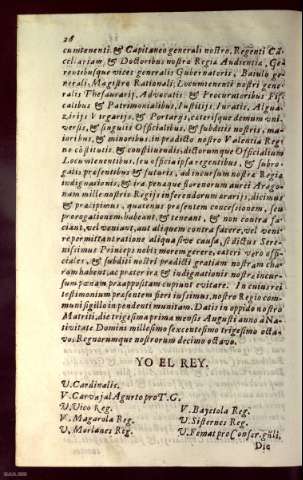 28
cumtenenti, & Capitaneo generali nostro, Regenti Cā-
cellariam, & Doctoribus nostræ Regiæ Audientiæ, Ge-
rentibusque vices generalis Gubernatoris, Baiulo ge-
nerali, Magistro Rationali, Locumtenenti nostri gene-
ralis Thesaurarij, Advocatis & Procuratoribus Fis-
calibus & Patrimonialibus, Iustitijs, Iuratis, Algua-
zirijs Virgarijs, & Portarijs, caterisque demum uni-
versis, & singulis Officialibus, & subditis nostris, ma-
ioribus, & minoribus, in prædicto nostro Valentiæ Reg-
no cōstitutis, & constituendis, dictorumque Officialium
Locumtenentibus, seu officia ipsa regentibus, & subro-
gatis præsentibus & futuris, ad incursum nostræ Regiæ
indignationis, & iræ pœnæque florenorum auri Arago-
num mille nostris Regijs inferendorum ærarijs, dicimus
& præcipimus, quatenus præsentem concessionem, seu
prorogationem habeant, & teneant, & non contra fa-
ciant, vel veniant, aut aliquem contra facere, vel veni-
re permittant ratione aliqua sive causa, si dictus Sere-
nissimus Princeps nobis morem gerere, cæteri vero offi-
ciales, & subditi nostri prædicti gratiam nostram cha-
ram habent, ac præter iræ & indignationis nostræ incur-
sum pœnam præappositam cupiunt evitare. In cuius rei
testimonium præsentem fieri iussimus, nostro Regio com-
muni sigillo in pendenti munitam. Datis in oppido nostro
Matriti, die trigesima prima mensis Augusti anno à Na-
tivitate Domini millesimo sexcentesimo trigesimo octa-
vo, Regnorumque nostrorum decimo octavo.
YO EL REY.
V. Cardinalis.
V. Carvajal Agurto pro T. G.
V. Vico Reg.
V. Magarola Reg.
V. Morlanes Reg.
V. Bayetola Reg.
V. Sisternes Reg.
V. Femat pro Conser. gñli.
Die